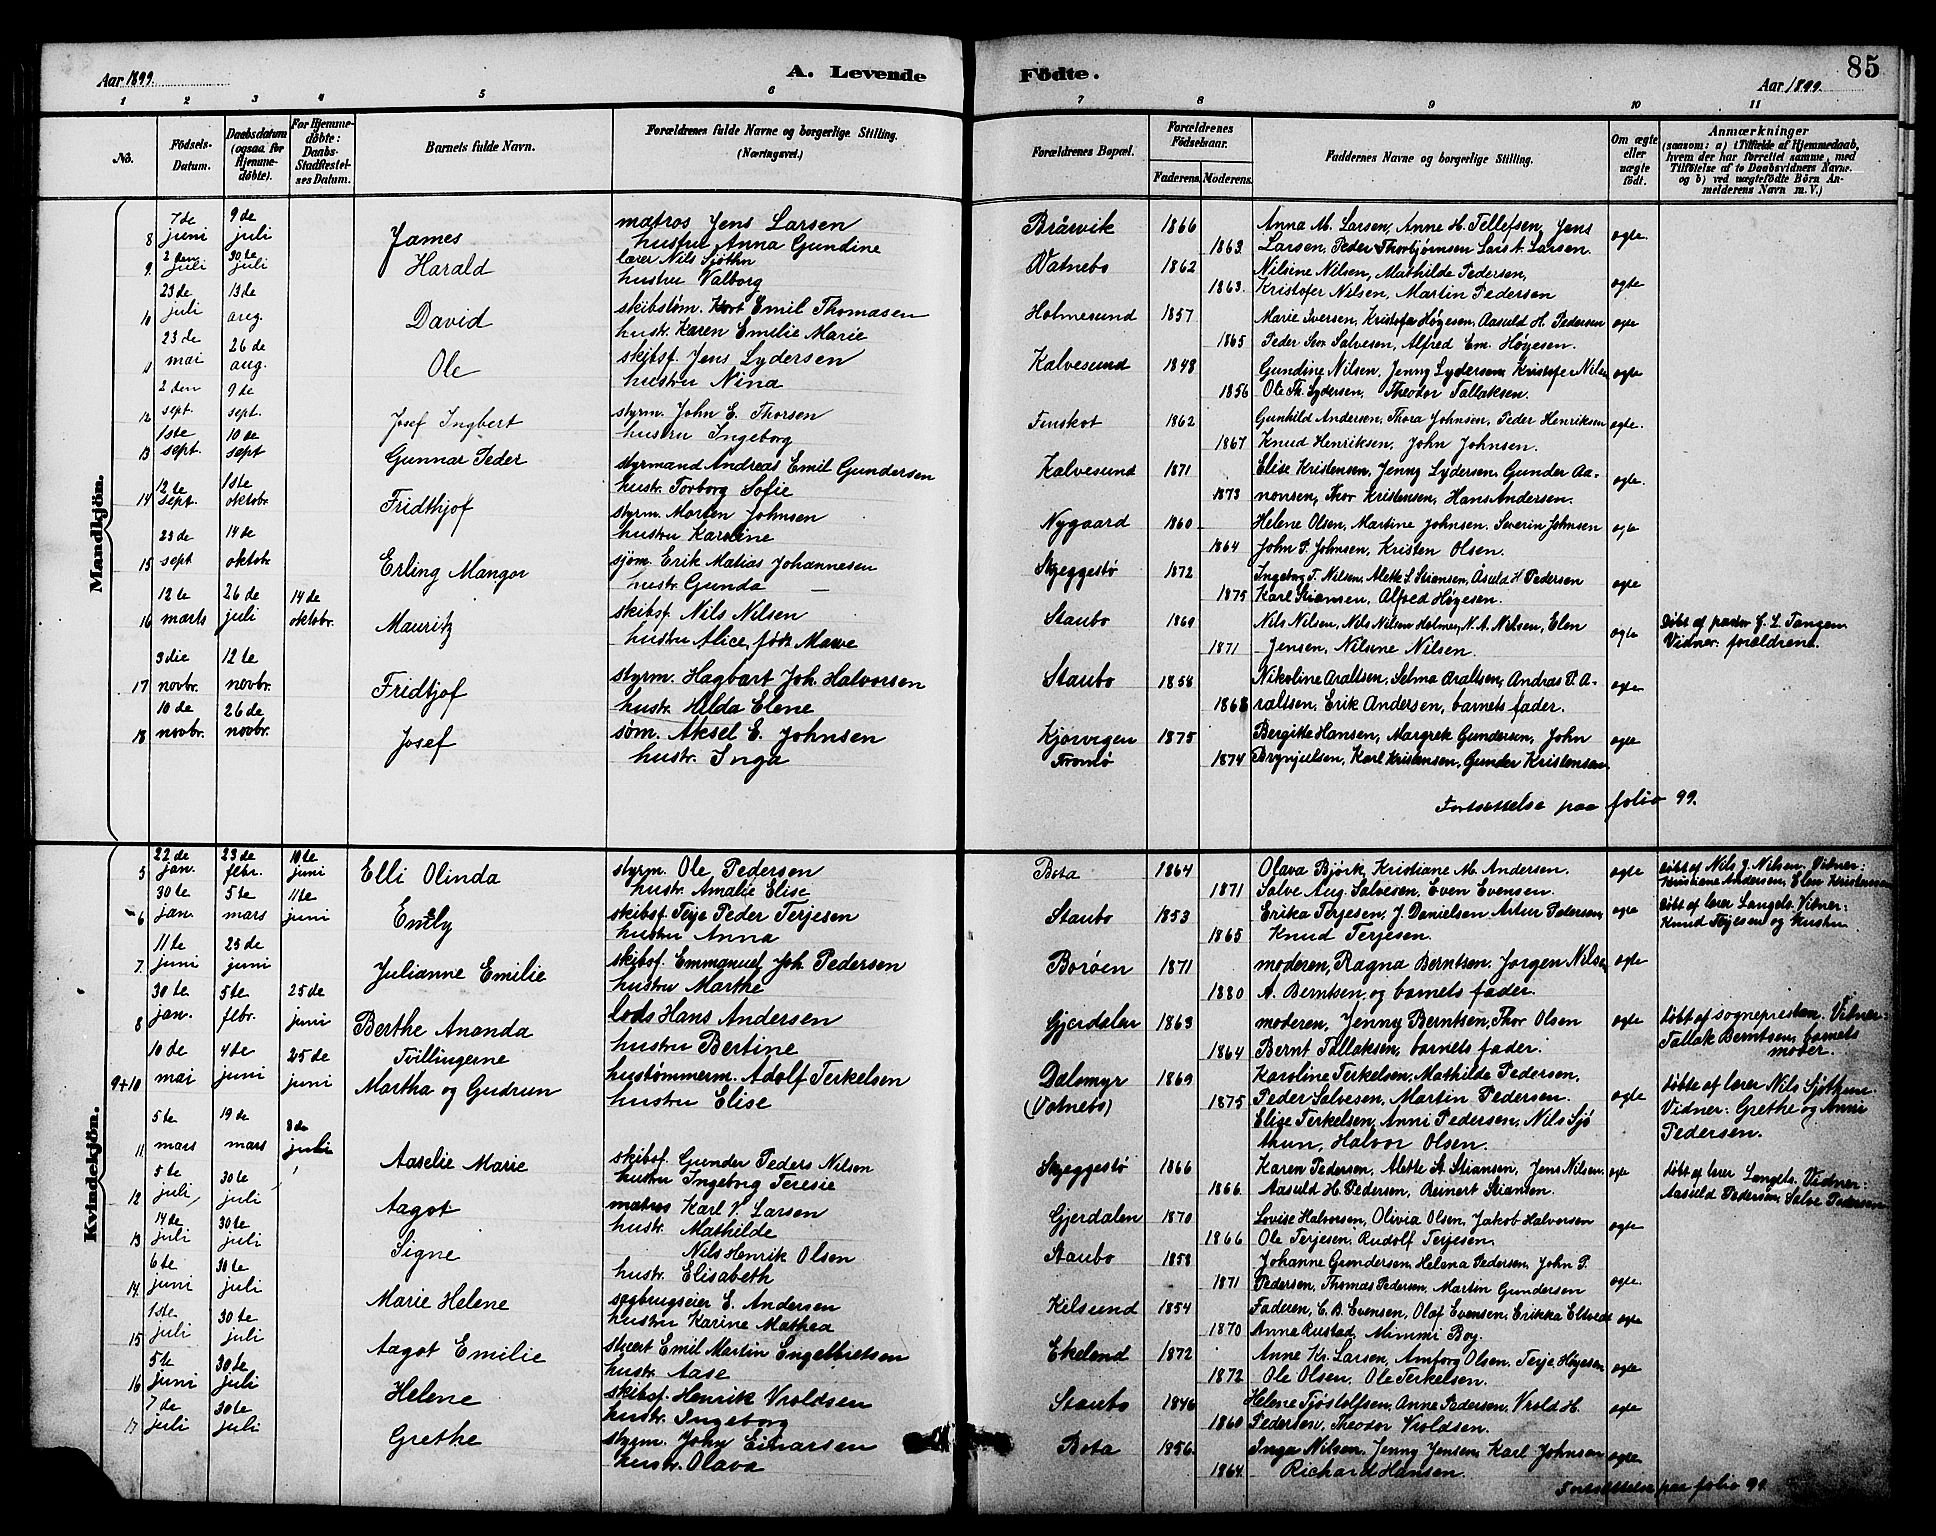 Aar 1899.
A. Levende
Födte.
Aar 1899.
85
1 2 3 4 5 6 7 8 9 10 11
No.
Födsels-Datum.
Daabsdatum (ogsaa for Hjemmedøbte).
For Hjemmedøbte: Daabs-Stadfestelses Datum.
Barnets fulde Navn.
Forældrenes fulde Navne og borgerlige Stilling. (Næringsvei.)
Forældrenes Bopæl.
Forældrenes Födselsaar.
Faderens. Moderens.
Faddernes Navne og borgerlige Stilling.
Om ægte eller uægte født.
Anmærkninger
(saasom: a) i Tilfælde af Hjemmedaab, hvem der har forrettet samme, med Tilföielse af to Daabsvidners Navne. og b) ved uægtefödte Börn Anmelderens Navn m. V.)
Mandkjön.
8 7de juni 9de juli James matros Jens Larsen Bråsvik 1866 Anna M. Larsen, Anne H. Tellefsen, Jens ægte
hustru Anna Gundine 1863. Larsen, Peder Thorbjørnsen Lars A. Larsen.
9. 2den juli 30te juli Harald lærer Nils Sjöthn Vatnebo 1862 Nilsine Nilsen, Mathilde Pedersen, ægte
hustru Valborg 1863. Kristofer Nilsen, Martin Pedersen
10 23de juli 13de aug. David skibstøm. Kort Emil Thomasen Holmesund 1857 Marie Iversen, Kristofer Høgesen, Aasuld H. Pedersen ægte
hustr. Karen Emilie Marie 1865 Peder Sov. Salvesen, Alfred Em. Høgesen.
11 23de mai 26de aug. Ole skibsf. Jens Lydersen Kalvesund 1848 Gundine Nilsen, Jenny Lydersen Kristofer Nilsen ægte
hustru Nina 1856 Ole Th. Lydersen, Theodor Tallaksen.
12 2den sept. 9de sept. Josef Ingbert styrm. John E. Thorsen Finskot 1862 Gunhild Andersen, Thora Johnsen, Peder Henriksen ægte.
hustru Ingeborg 1867 Knud Henriksen, John Johnsen.
13 1ste sept. 10de sept Gunnar Peder styrmand Andreas Emil Gundersen Kalvesund 1871 Elise Kristensen, Jenny Lydersen, Gunder Aa- ægte
hustr. Torborg Sofie 1873 nonsen, Thor Kristensen, Hans Andersen.
14 12te sept. 1ste oktobr. Fridthjof styrm. Morten Johnsen Nygaard 1860 Helene Olsen, Martine Johnsen. Severin Johnsen ægte
hustru Karoline 1864 John P. Johnsen, Kristen Olsen.
15 23de sept 14de oktobr Erling Mangor sjøm. Erik Matias Johannesen Skjeggestø 1872 Ingeborg T. Nilsen, Alette S. Stiansen, Asuld H. Pedersen ægte
hustr. Gunda 1875 Karl Stiansen, Alfred Høgesen.
16 12te marts 26de juli 14de oktobr. Mauritz skibsf. Nils Nilsen Staubo 1869 Nils Nilsen, Nils Nilsen Holmen, N. A. Nilsen, Elen ægte Døbt af pastor L. Tangen
hustru Alice, født Mawe 1871 Jensen, Nilsine Nilsen. Vidner: forældrene.
17 3die novbr. 12te novbr. Fridtjof styrm. Hagbart Joh. Halvorsen Staubo 1858 Nikoline Araltsen, Selma Araltsen, Andras P. A- ægte
hustr. Hilda Elene 1868 raltsen, Erik Andersen, barnets fader.
18 10de novbr. 26de novbr. Josef søm. Aksel E. Johnsen Kjørvigen 1875 Bergitte Hansen, Margrete Gundersen, John ægte
hustr. Inga Tromø 1874 Brynjulsen, Karl Kristensen, Gunder Kristensen
Fortsættelse paa folio 99.
Kvindekjön.
5 22de jan. 23de fbr. 10te juni Elli Olinda styrm. Ole Pedersen Bota 1864 Olava Bjørk, Kristiane M. Andersen. ægte døbt af Nils J. Nilsen, Vidner:
hustr. Amalie Elise 1871 Salve Aug. Salvesen, Even Evensen. Kristiane Andersen, Elen Kristensen
6 30te jan. 5te mars 11te juni Emely skibsf. Terje Peder Terjesen Staubo 1853 Erika Terjesen, J. Danielsen Artur Pedersen, ægte døbt af lærer Langels. Vidner:
hustru Anna 1865 Knud Terjesen. Knud Terjesen og hustru
7. 11te juni 25de juni Julianne Emilie skibsf. Emmanuel Joh. Pedersen Borøen 1871 moderen, Ragna Berntsen, Jørgen Nilsen ægte
hustru Marthe 1880 A. Berntsen, og barnets fader.
8 30te jan. 5te fbr. 25de juni Berthe Ananda lods Hans Andersen Gjerdalen 1863 moderen, Jenny Berntsen, Thor Olsen ægte døbt af sogneprestan. Vidner:
hustru Bertine 1864 Bernt Tallaksen, barnets fader. Tallak Berntsen, barnets moder.
9+10 10de mai 4de juni 25de juni Tvillingerne Martha og Gudrun hustømmerm. Adolf Terkelsen Dalsmyr 1869 Karoline Terkelsen, Mathilde Pedersen, ægte døbte af lærer Nils Sjöthun
hustru Elise (Vatnebo) 1875 Peder Salvesen, Martin Pedersen. Vidner: Grethe og Anni
Elise Terkelsen, Anni Pedersen, Nils Sjø Pedersen.
thun, Halvor Olsen.
11 5te mars 19de mars 8de juli Aaselie Marie skibsf. Gunder Peders Nilsen Skjeggestø 1866 Karen Pedersen, Alette A. Stiansen, Jens Nilsen. ægte døbt af lærer Langels. Vidner:
hustru Ingeborg Teresie 1866 Aasuld H. Pedersen, Reinert Stiansen. Aasuld Pedersen, Salve Pedersen
12 5te juli 30te juli Aagot matros Karl V. Larsen Gjerdalen 1870 Lovise Halvorsen, Olivia Olsen, Jakob Halvorsen ægte
hustr. Mathilde 1866 Ole Terjesen, Rudolf Terjesen.
13 14de juli 30te juli Signe Nils Henrik Olsen Staubo 1858 Johanne Gundersen, Helena Pedersen, John P.
hustr. Elisabeth 1871 Pedersen, Thomas Pedersen, Martin Gundersen ægte
14. 6te juni 30te juli Marie Helene sagbrugseier E. Andersen Kilsund 1854 Faderen, C. B. Evensen, Olaf Evensen, Erikka Eltvedt ægte
hustru Karine Mathea 1870 Anna Rustad, Mimmi Boy.
15 1ste juli 30te juli Aagot Emilie stuert Emil Martin Engelbretsen Ekelend 1872 Anne Kr. Larsen, Amborg Olsen, Terje Høgesen ægte
hustr. Aase 1872 Ole Olsen, Ole Terkelsen.
16 5te juni 30te juli Helene skibsf. Henrik Vroldsen Staubo 1846 Helene Tjøstolfsen, Anne Pedersen, Vrold H. ægte
hustr. Ingeborg 1860 Pedersen, Theodor Vroldsen.
17 7de juli 30te juli Grethe styrm. John Einarsen Bota 1856 Inga Nilsen, Jenny Jensen, Karl Johnsen ægte
hustr. Olava 1864 Richard Hansen.
Fortsættelse paa folio 99.